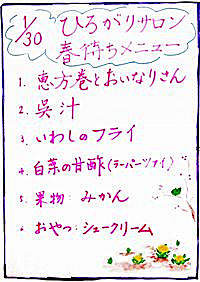 1/30 ひろがりサロン
春待ちメニュー
1. 恵方巻とおいなりさん
2. 呉汁
3. いわしのフライ
4. 白菜の甘酢(ラーパーツァイ)
5. 果物:みかん
6. おやつ:シュークリーム